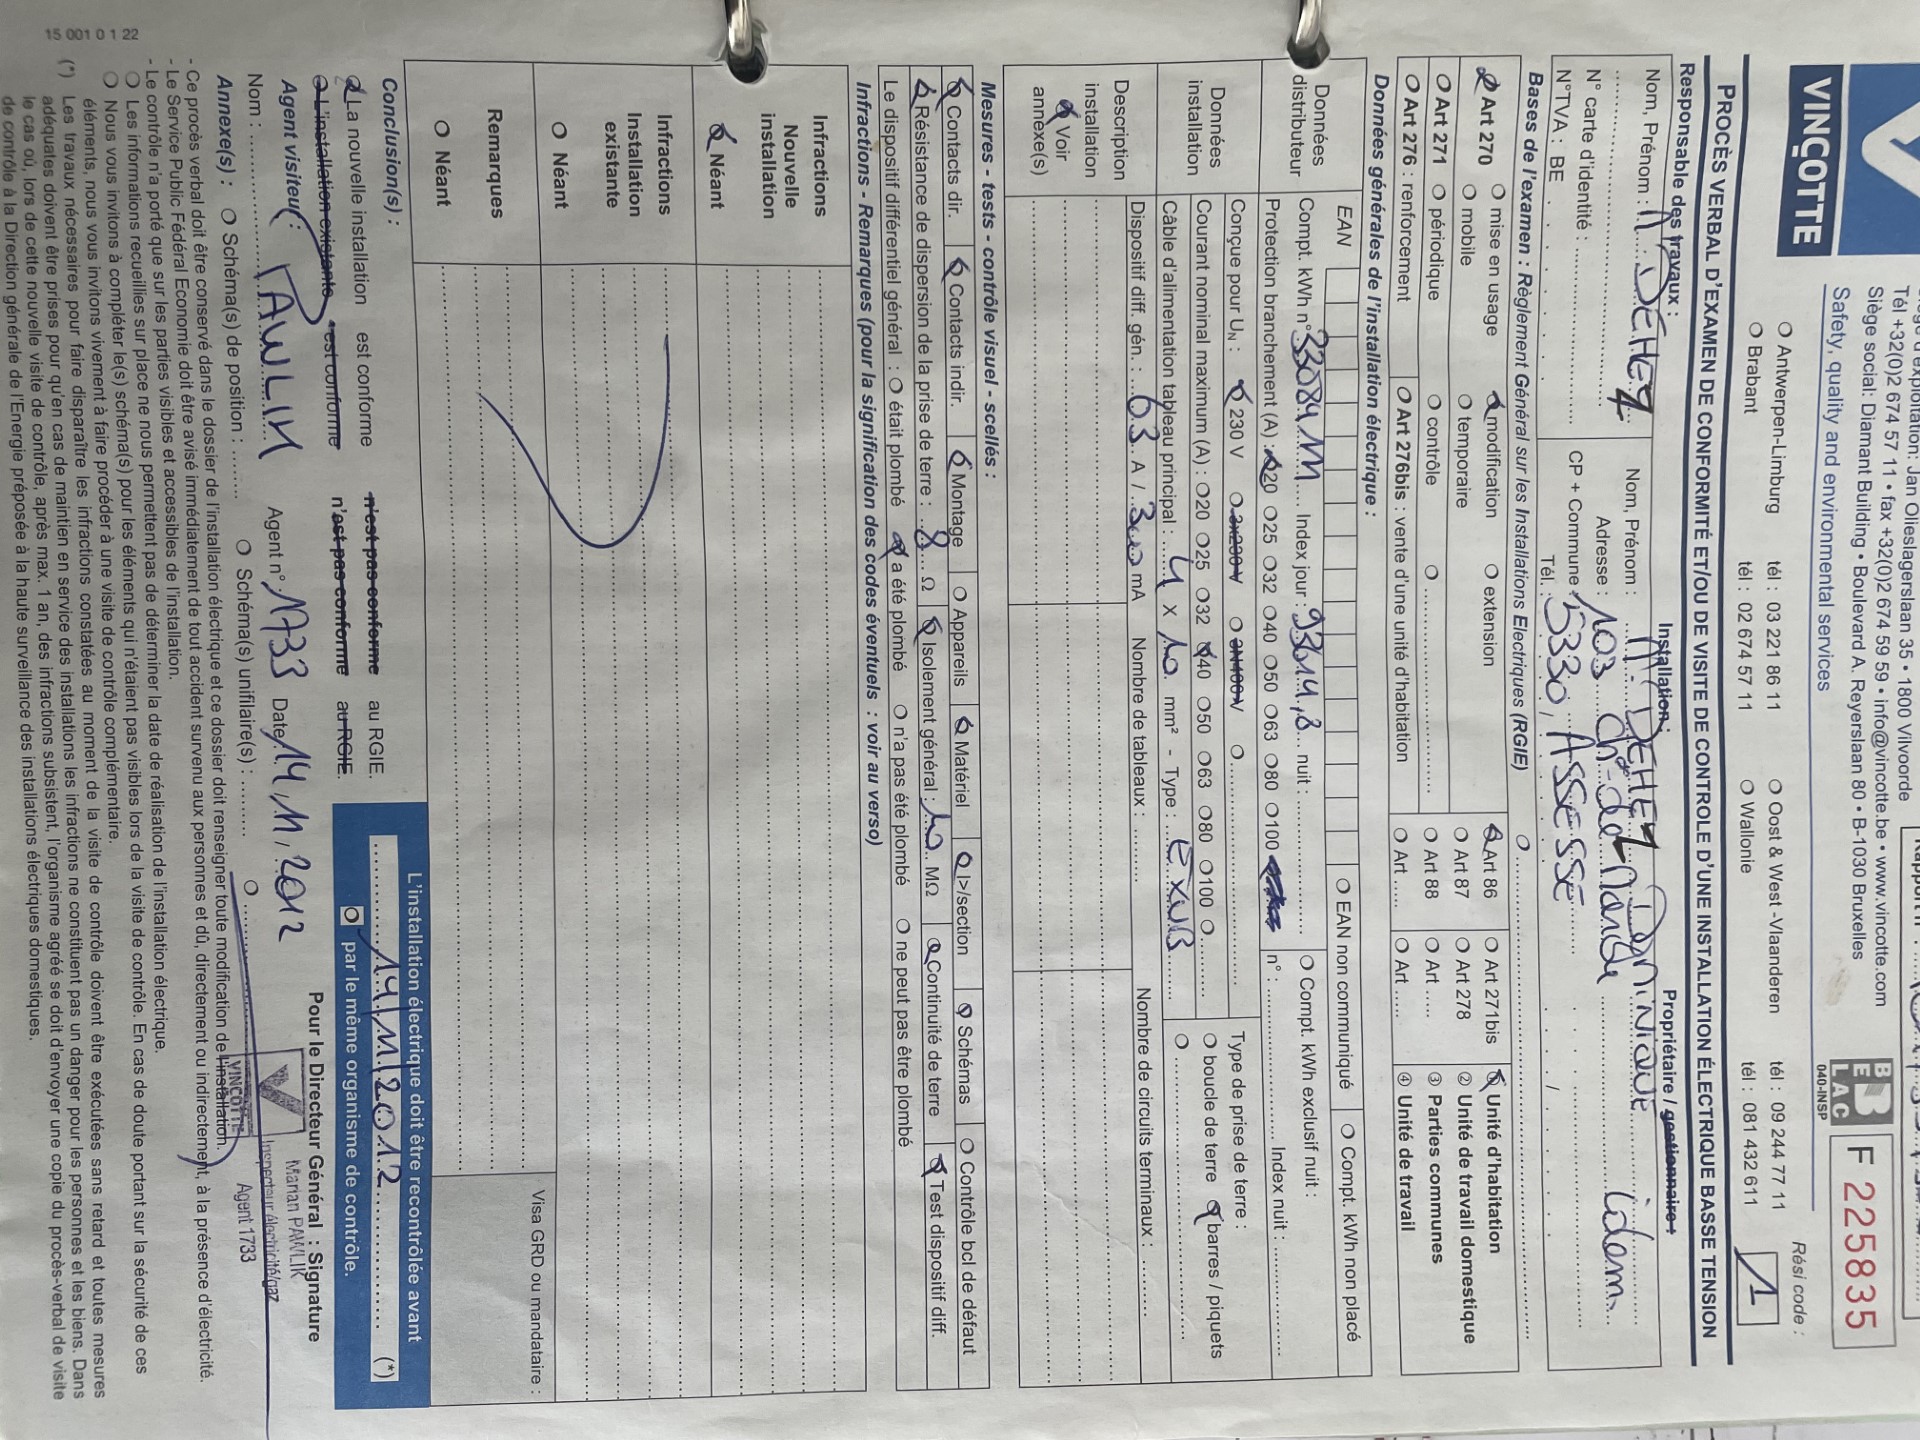 VINÇOTTE
Tél +32(0)2 674 57 11 • fax +32(0)2 674 59 59 • info@vincotte.be • www.vincotte.com
Siège social: Diamant Building • Boulevard A. Reyerslaan 80 • B-1030 Bruxelles
Safety, quality and environmental services
BELAC
040-INSP
F 225835
○ Antwerpen-Limburg tél : 03 221 86 11 ○ Oost & West -Vlaanderen tél : 09 244 77 11 Rési code :
○ Brabant tél : 02 674 57 11 ○ Wallonie tél : 081 432 611 1
PROCÈS VERBAL D'EXAMEN DE CONFORMITÉ ET/OU DE VISITE DE CONTROLE D'UNE INSTALLATION ÉLECTRIQUE BASSE TENSION
Responsable des travaux : Installation : Propriétaire / gestionnaire :
Nom, Prénom : M DEHEZ Nom, Prénom : M. DEHEZ Dominique idem
N° carte d'identité : Adresse : 103 Ch de Marche
N°TVA : BE CP + Commune 5330, ASSESSE
Tél.
Bases de l'examen : Règlement Général sur les Installations Electriques (RGIE)
Art 270 ○ mise en usage modification ○ extension ○ Art 86 ○ Art 271bis ① Unité d'habitation
○ mobile ○ temporaire ○ Art 87 ○ Art 278 ② Unité de travail domestique
○ Art 271 ○ périodique ○ contrôle ○ ○ Art 88 ○ Art ③ Parties communes
○ Art 276 : renforcement ○ Art 276bis : vente d'une unité d'habitation ○ Art ○ Art ④ Unité de travail
Données générales de l'installation électrique :
Données distributeur
EAN ○ EAN non communiqué ○ Compt. kWh non placé
Compt. kWh n° 33084111 Index jour : 93014,8 nuit : ○ Compt. kWh exclusif nuit :
Protection branchement (A) : ○20 ○25 ○32 ○40 ○50 ○63 ○80 ○100 n° : Index nuit :
Données installation
Conçue pour UN : ○ 230 V ○ 3x230V ○ 3N400V ○ Type de prise de terre :
Courant nominal maximum (A) : ○20 ○25 ○32 ○40 ○50 ○63 ○80 ○100 ○ ○ boucle de terre ○ barres / piquets
Câble d'alimentation tableau principal : 4 X 10 mm² - Type : EXVB ○
Description installation
Voir annexe(s)
Dispositif diff. gén. : 63 A / 300 mA Nombre de tableaux : Nombre de circuits terminaux :
Mesures - tests - contrôle visuel - scellés :
○ Contacts dir. ○ Contacts indir. ○ Montage ○ Appareils ○ Matériel ○ I>/section ○ Schémas ○ Contrôle bcl de défaut
○ Résistance de dispersion de la prise de terre : 8 Ω ○ Isolement général : 10 MΩ ○ Continuité de terre ○ Test dispositif diff.
Le dispositif différentiel général : ○ était plombé ○ a été plombé ○ n'a pas été plombé ○ ne peut pas être plombé
Infractions - Remarques (pour la signification des codes éventuels : voir au verso)
Infractions
Nouvelle
installation
○ Néant
Infractions
Installation
existante
○ Néant
Remarques
○ Néant
Visa GRD ou mandataire :
Conclusion(s) :
La nouvelle installation est conforme n'est pas conforme au RGIE.
L'installation existante est conforme n'est pas conforme au RGIE.
L'installation électrique doit être recontrôlée avant
14/11/2012 (*)
○ par le même organisme de contrôle.
Agent visiteur :
Nom : PAWLIK Agent n° 1733 Date 14,11,2012
Pour le Directeur Général : Signature
VINÇOTTE
Marian PAWLIK
Inspecteur électricité/gaz
Agent 1733
Annexe(s) : ○ Schéma(s) de position : ○ Schéma(s) unifilaire(s) : ○
- Ce procès verbal doit être conservé dans le dossier de l'installation électrique et ce dossier doit renseigner toute modification de l'installation.
- Le Service Public Fédéral Economie doit être avisé immédiatement de tout accident survenu aux personnes et dû, directement ou indirectement, à la présence d'électricité.
- Le contrôle n'a porté que sur les parties visibles et accessibles de l'installation.
○ Les informations recueillies sur place ne nous permettent pas de déterminer la date de réalisation de l'installation électrique.
○ Nous vous invitons à compléter le(s) schéma(s) pour les éléments qui n'étaient pas visibles lors de la visite de contrôle. En cas de doute portant sur la sécurité de ces
éléments, nous vous invitons vivement à faire procéder à une visite de contrôle complémentaire.
(*) Les travaux nécessaires pour faire disparaître les infractions constatées au moment de la visite de contrôle doivent être exécutées sans retard et toutes mesures
adéquates doivent être prises pour qu'en cas de maintien en service des installations les infractions ne constituent pas un danger pour les personnes et les biens. Dans
le cas où, lors de cette nouvelle visite de contrôle, après max. 1 an, des infractions subsistent, l'organisme agréé se doit d'envoyer une copie du procès-verbal de visite
de contrôle à la Direction générale de l'Energie préposée à la haute surveillance des installations électriques domestiques.
15 001 0 1 22